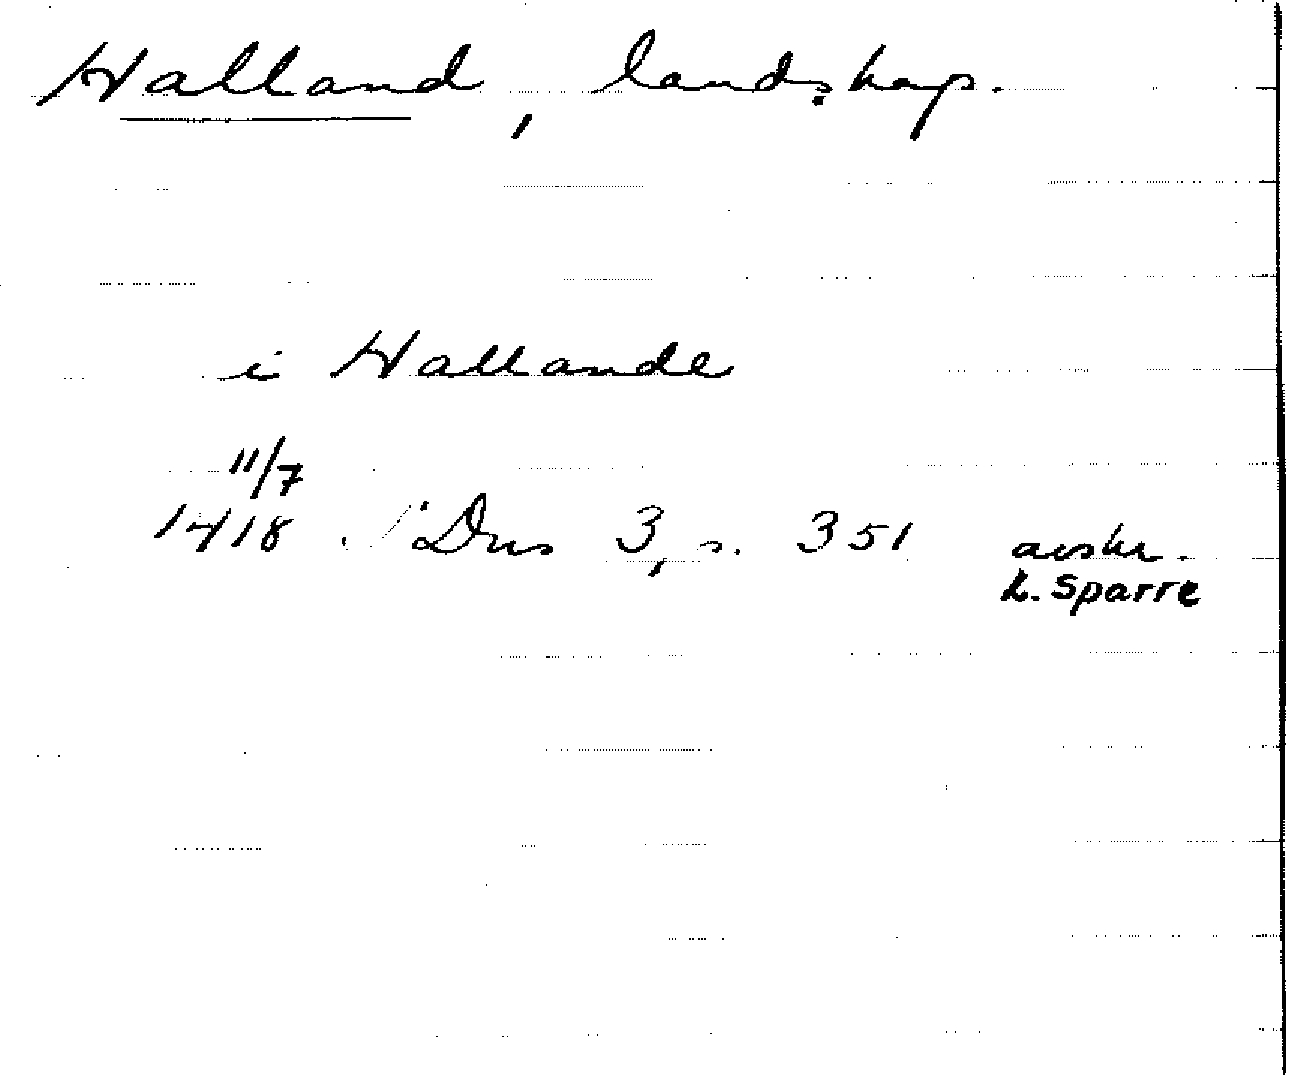 Halland, landskap.
i Hallande
11/7
1418 SDns 3, s. 351 avskr.
L. Sparre